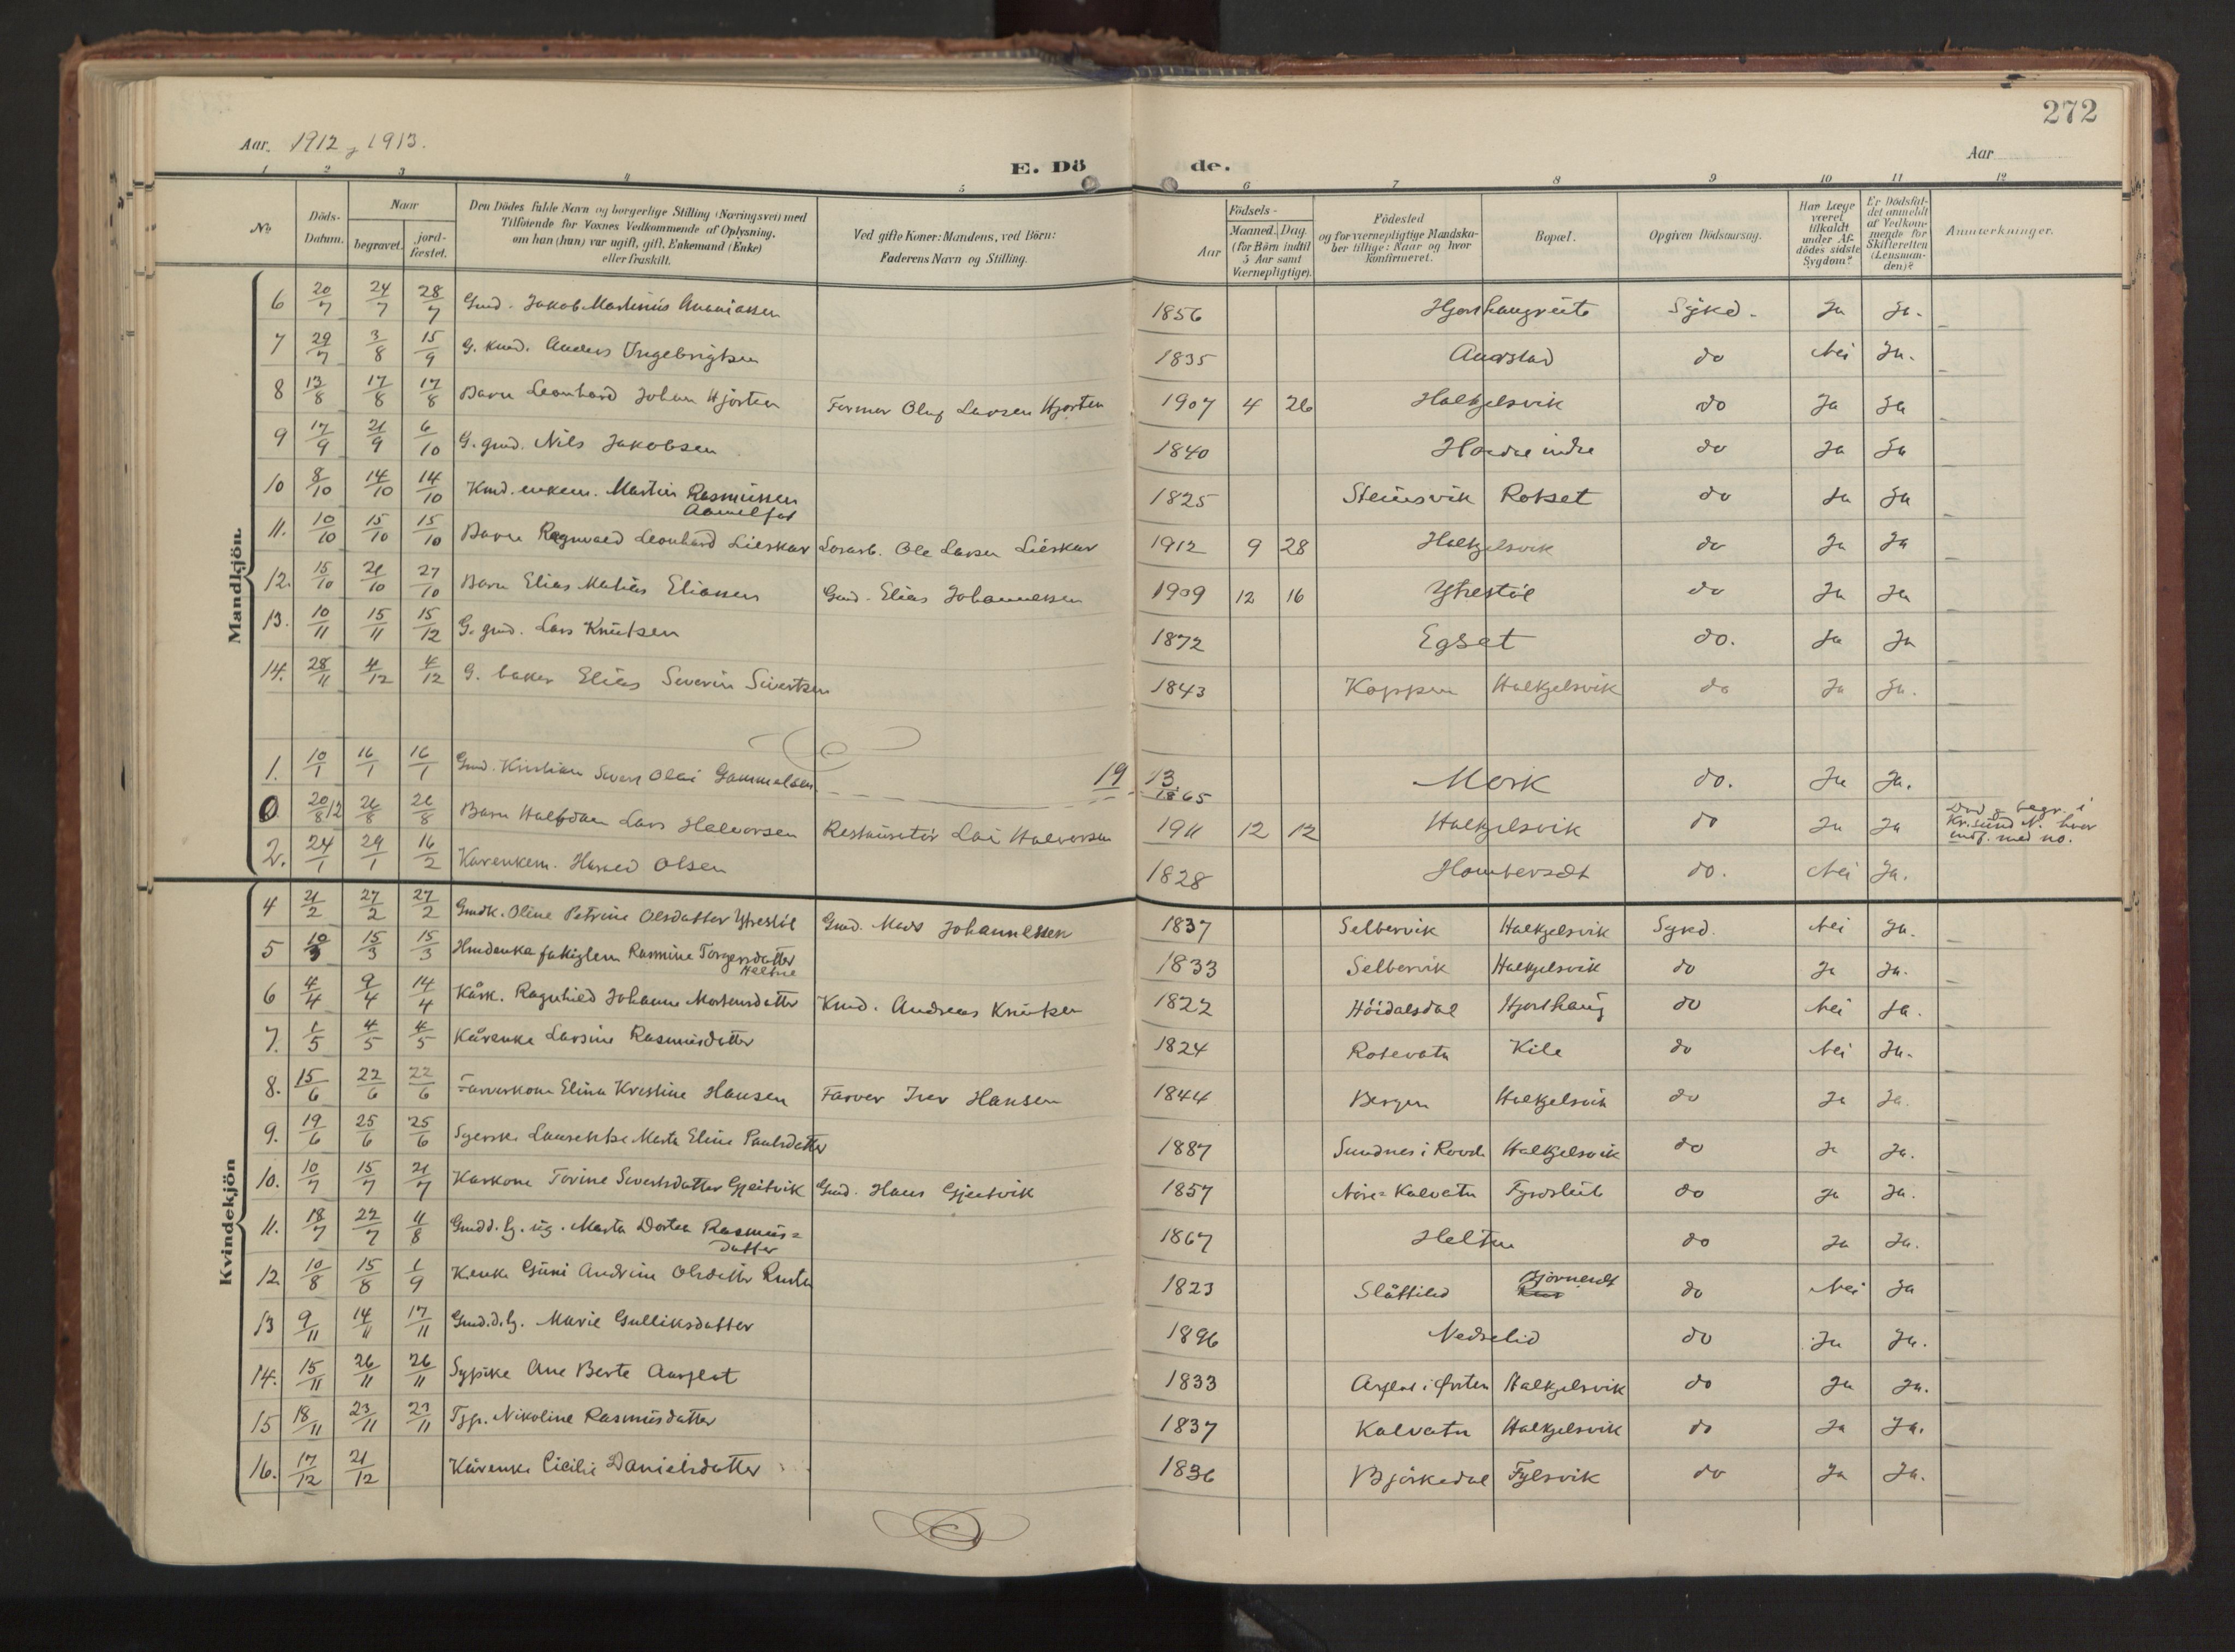 272
Aar. 1912 & 1913.
Aar
E. Dö de.
1 2 3 4 5 6 7 8 9 10 11 12
No
Döds-Datum.
Naar
begravet.
jord-fæstet.
Den Dödes fulde Navn og borgerlige Stilling (Næringsvei) med
Tilföiende for Voxnes Vedkommende af Oplysning,
om han (hun) var ugift, gift, Enkemand (Enke)
eller fraskilt.
Ved gifte Koner: Mandens, ved Börn:
Faderens Navn og Stilling.
Födsels-
Aar
Maaned. Dag.
(for Börn indtil
5 Aar samt
Værnepligtige).
Födested
og for værnepligtige Mandska-
ber tillige: Naar og hvor
konfirmeret.
Bopæl.
Opgiven Dödsaarsag.
Har Læge
været
tilkaldt
under Af-
dödes sidste
Sygdom?
Er Dödsfal-
det anmeldt
af Vedkom-
mende for
Skifteretten
(Lensman-
den)?
Anmærkninger.
Mandkjön.
6 20/7 24/7 28/7 Gmd. Jakob Martinus Ananiassen 1856 Hjorthaugreite Sykd. Ja Ja.
7 29/7 3/8 15/9 G. kmd. Anders Ingebrigtsen 1835 Aarstad do Nei Ja.
8 13/8 17/8 17/8 Barn Leonhard Johan Hjorten Former Oluf Larsen Hjorten 1907 4 26 Halkjelsvik do Ja Ja
9 17/9 21/9 6/10 G. gmd. Nils Jakobsen 1840 Hovde indre do Ja Ja
10 8/10 14/10 14/10 Kmd. enkem. Martin Rasmussen
Aamelfot 1825 Steinsvik Rotset do Ja Ja
11. 10/10 15/10 15/10 Barn Ragnvald Leonhard Lieskar Losarb. Ole Larsen Lieskar 1912 9 28 Halkjelsvik do Ja Ja
12. 15/10 21/10 27/10 Barn Elias Matias Eliassen Gmd. Elias Johannessen 1909 12 16 Ytrestöl do Ja Ja
13. 10/11 15/11 15/12 G. gmd. Lars Knutsen 1872 Egset do. Ja Ja
14. 28/11 4/12 4/12 G. baker Elias Severin Sivertsen 1843 Koppen Halkjelsvik do Ja Ja.
1. 10/1 16/1 16/1 Gmd. Kristian Sivert Olai Gammelsen 19 13. 1865 Mork do. Ja Ja.
0 20/8 12 26/8 26/8 Barn Halfdan Lars Halvorsen Restauratör Lars Halvorsen 1911 12 12 Halkjelsvik do Ja Ja Död & begr. i
Kr.sund N. hvor
indf. med no.
2. 24/1 29/1 16/2 Kårenkem. Harald Olsen 1828 Homberset do. Nei Ja.
Kvindekjön
4 21/2 27/2 27/2 Gmdk. Oline Petrine Olsdatter Ytrestöl Gmd. Mads Johannessen 1837 Selbervik Halkjelsvik Sygd. Nei Ja.
5 10/3 15/3 15/3 Hmdenke fattiglem Rasmine Torgersdatter
Heltne 1833 Selbervik Halkjelsvik do Ja Ja.
6 4/4 9/4 14/4 Kårk. Ragnhild Johanne Mortensdatter Kmd. Andreas Knutsen 1822 Höidalsdal Hjorthaug do Nei Ja.
7. 1/5 4/5 4/5 Kårenke Larsine Rasmusdatter 1824 Rotevatn Kile do Nei Ja.
8. 15/6 22/6 22/6 Farverkone Elina Kristine Hansen Farver Iver Hansen 1844 Bergen Halkjelsvik do Ja Ja.
9. 19/6 25/6 25/6 Syerske Laurentse Marta Eline Paulsdatter 1887 Sundnes i Rovde Halkjelsvik do Ja Ja.
10. 10/7 15/7 21/7 Kårkone Torine Sivertsdatter Gjeitvik Gmd. Hans Gjeitvik 1857 Nöre-Kalvatn Fyrdsleite do Ja Ja.
11. 18/7 22/7 11/8 Gmdd. lg. ug. Marta Dortea Rasmus-
datter 1867 Heltne do Ja Ja.
12 10/8 15/8 1/9 Kenke Guni Andrine Olsdatter 1823 Slåttelid Bjørneset do Nei Ja
13 9/11 14/11 17/11 Gmd.d. lg. Marie Gulliksdatter 1896 Nedrelid do Ja Ja.
14. 15/11 26/11 26/11 Sypike Ane Berte Aarflot 1833 Arflot i Örsten Halkjelsvik do Ja Ja.
15 18/11 23/11 23/11 Tjp. Nikoline Rasmusdatter 1837 Kalvatn Halkjelsvik do Ja Ja.
16. 17/12 21/12 Kårenke Cicilie Danielsdatter 1836 Bjørkedal Fylsvik do Ja Ja.